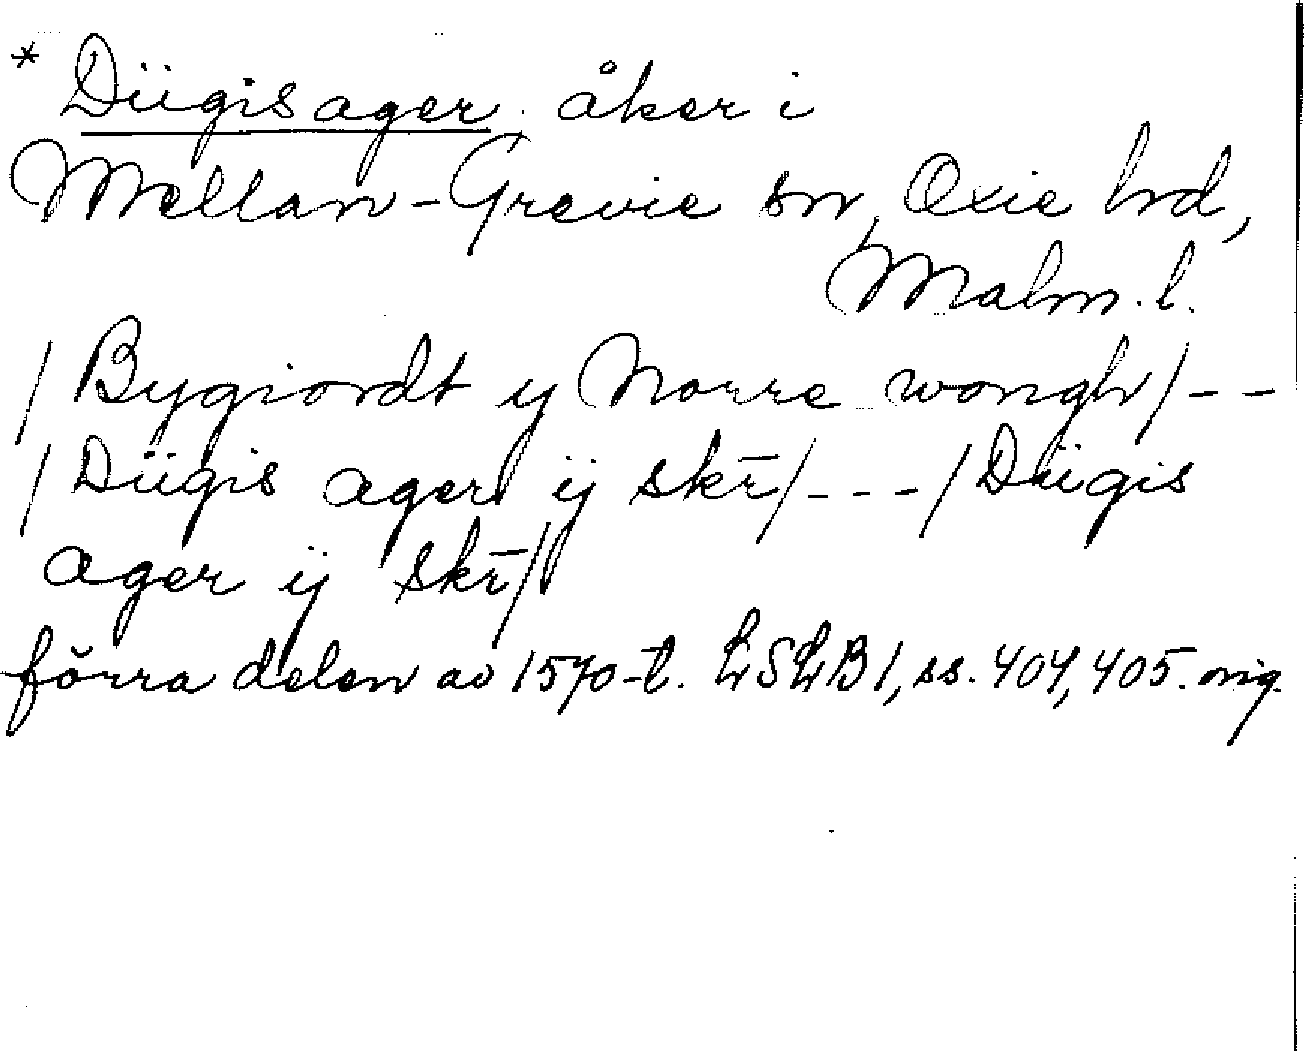 * Dügisager, åker i
Mellan-Grevie sn, Oxie hd,
Malm. l.
/ Bygiordt y Norre wongh / - -
/ Dügis ager ÿ skr̄ / - - - / Dügis
ager ÿ skr̄ /
förra delen av 1570-t. LSLB 1, ss. 404, 405. orig.